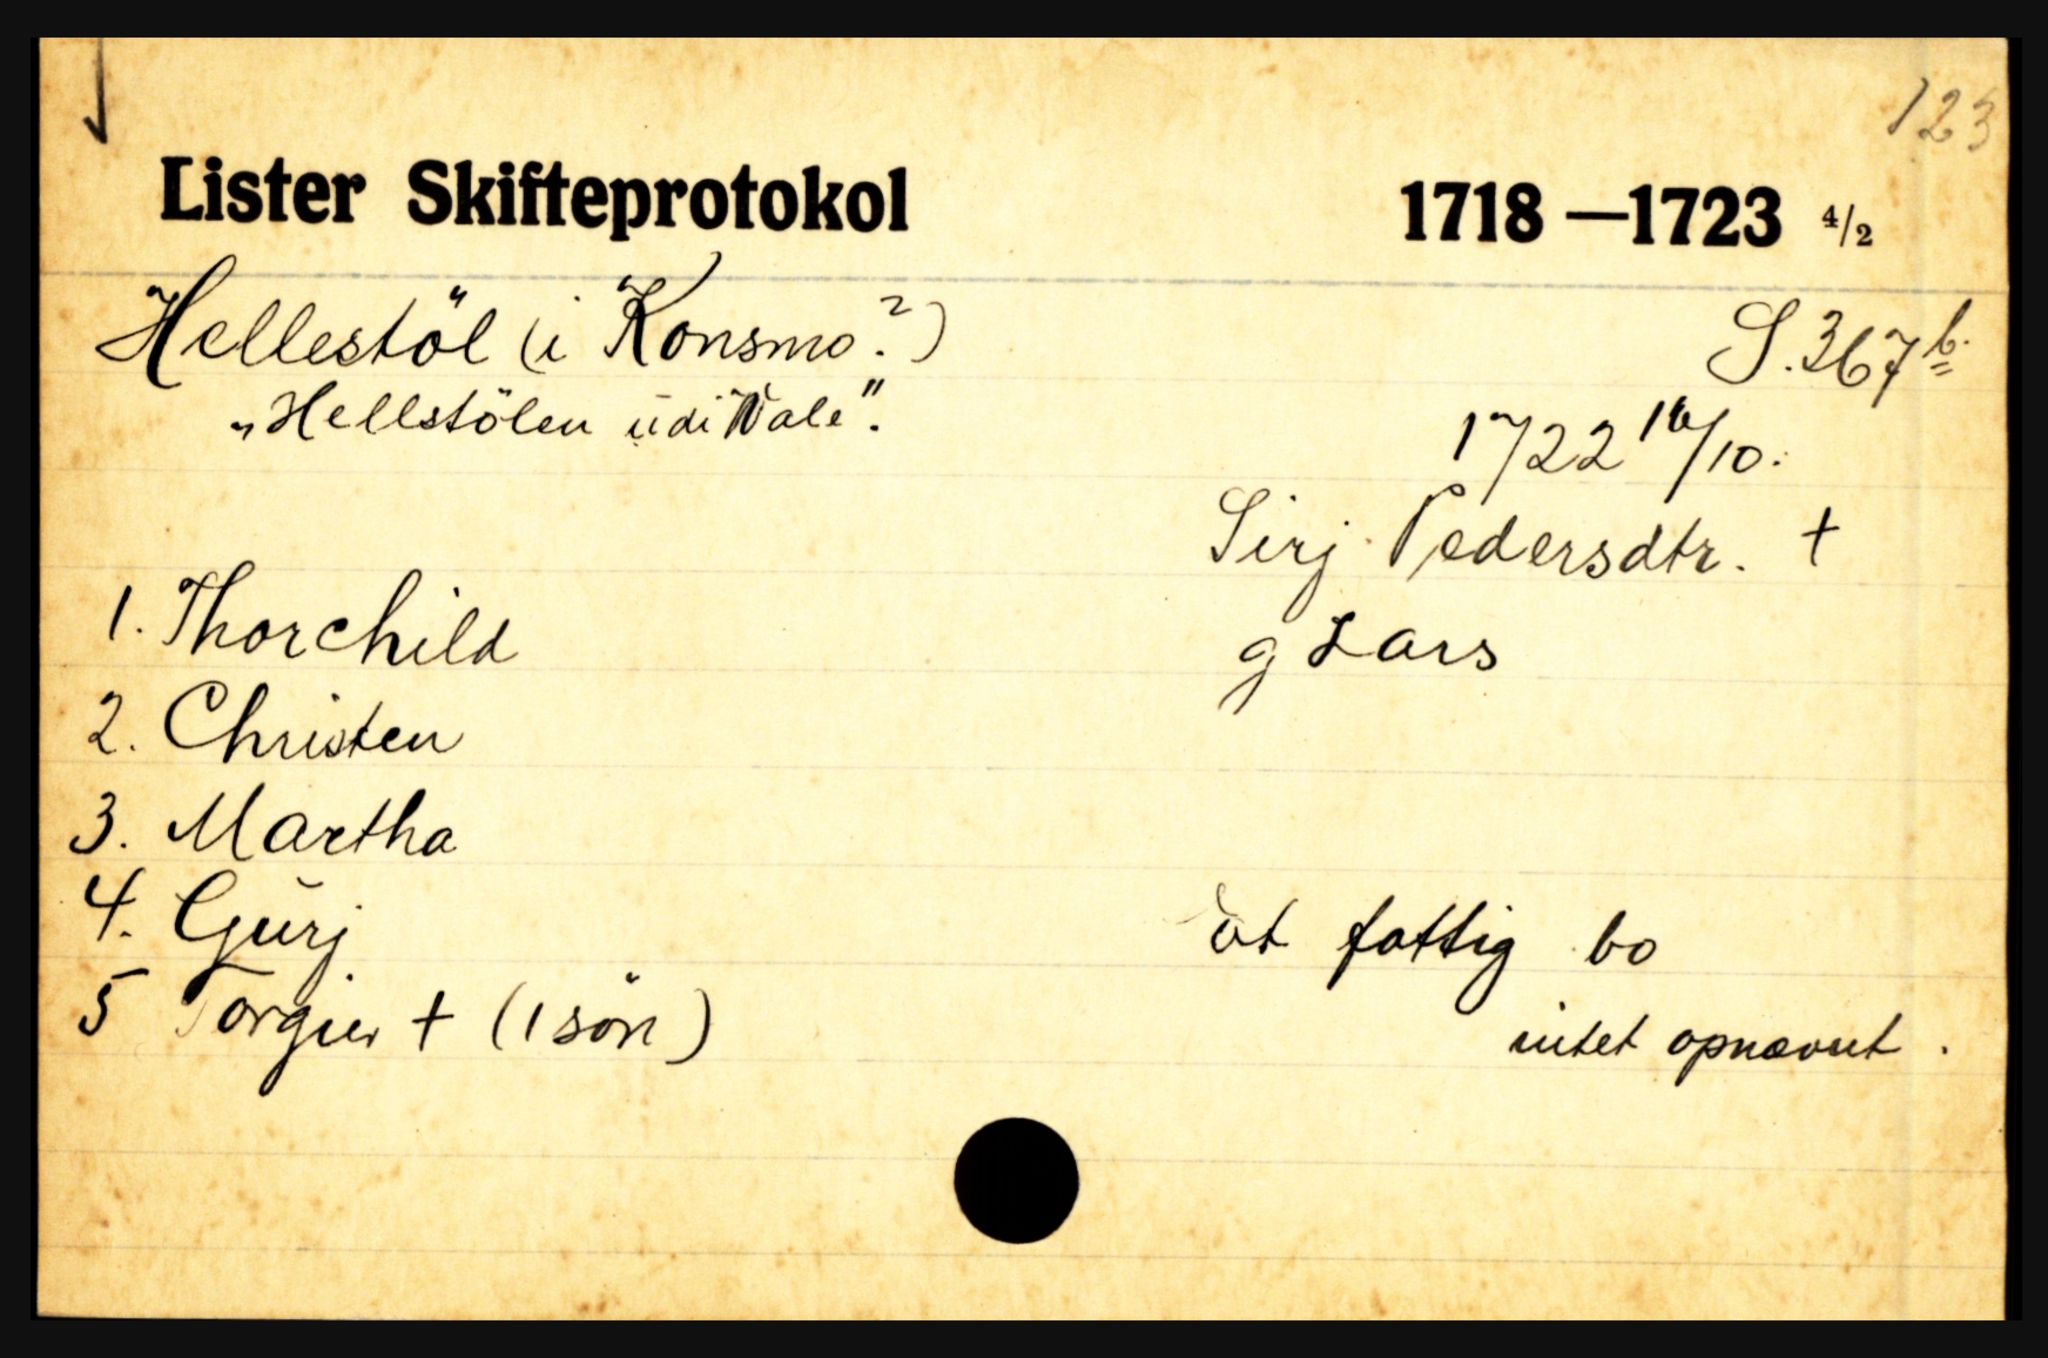 123
Lister Skifteprotokol 1718—1723 4/2
Hellestöl (i Konsmo?) S. 367 b.
„Hellstölen udi Wale".
1722 16/10.
Sirj Pedersdtr. †
1. Thorchild g Lars
2. Christen
3. Martha
4. Gurj
et fattig bo
5 Torgier † (1 sön)
intet opnævnt.